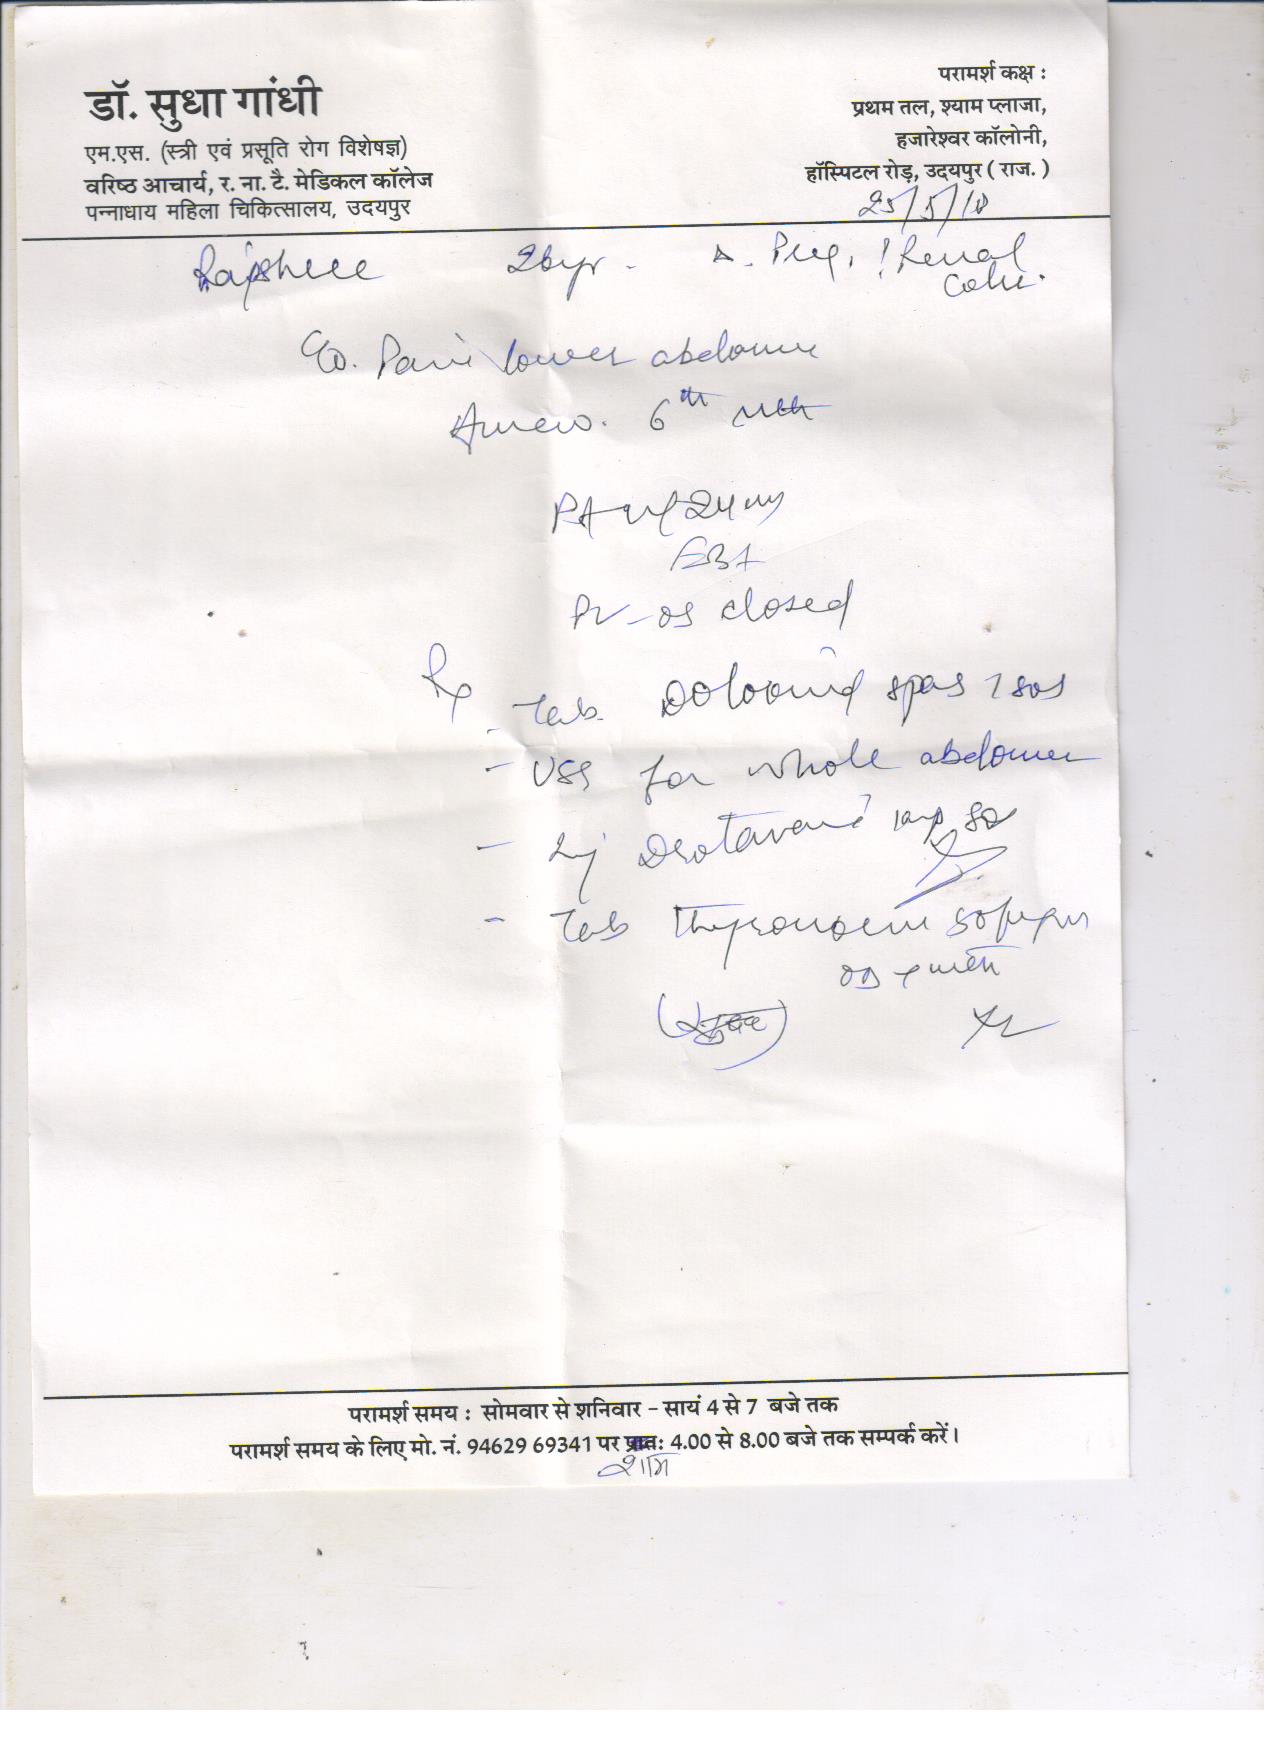 डॉ. सुधा गांधी
एम.एस. (स्त्री एवं प्रसूति रोग विशेषज्ञ)
वरिष्ठ आचार्य, र. ना. टै. मेडिकल कॉलेज
पन्नाधाय महिला चिकित्सालय, उदयपुर
परामर्श कक्ष :
प्रथम तल, श्याम प्लाजा,
हजारेश्वर कॉलोनी,
हॉस्पिटल रोड़, उदयपुर ( राज. )
25/5/18
Rajshree 26yr. Preg. ! Renal
Colic.
Pain lower abdomen
Amen. 6th mth
PA
PV - os closed
Rx
- Tab. spas 1 sos
- USG for whole abdomen
- Inj Drotaverine 1amp sos
- Tab Thyronorm 50µgm
OD
परामर्श समय : सोमवार से शनिवार – सायं 4 से 7 बजे तक
परामर्श समय के लिए मो. नं. 94629 69341 पर प्रातः 4.00 से 8.00 बजे तक सम्पर्क करें।
शाम